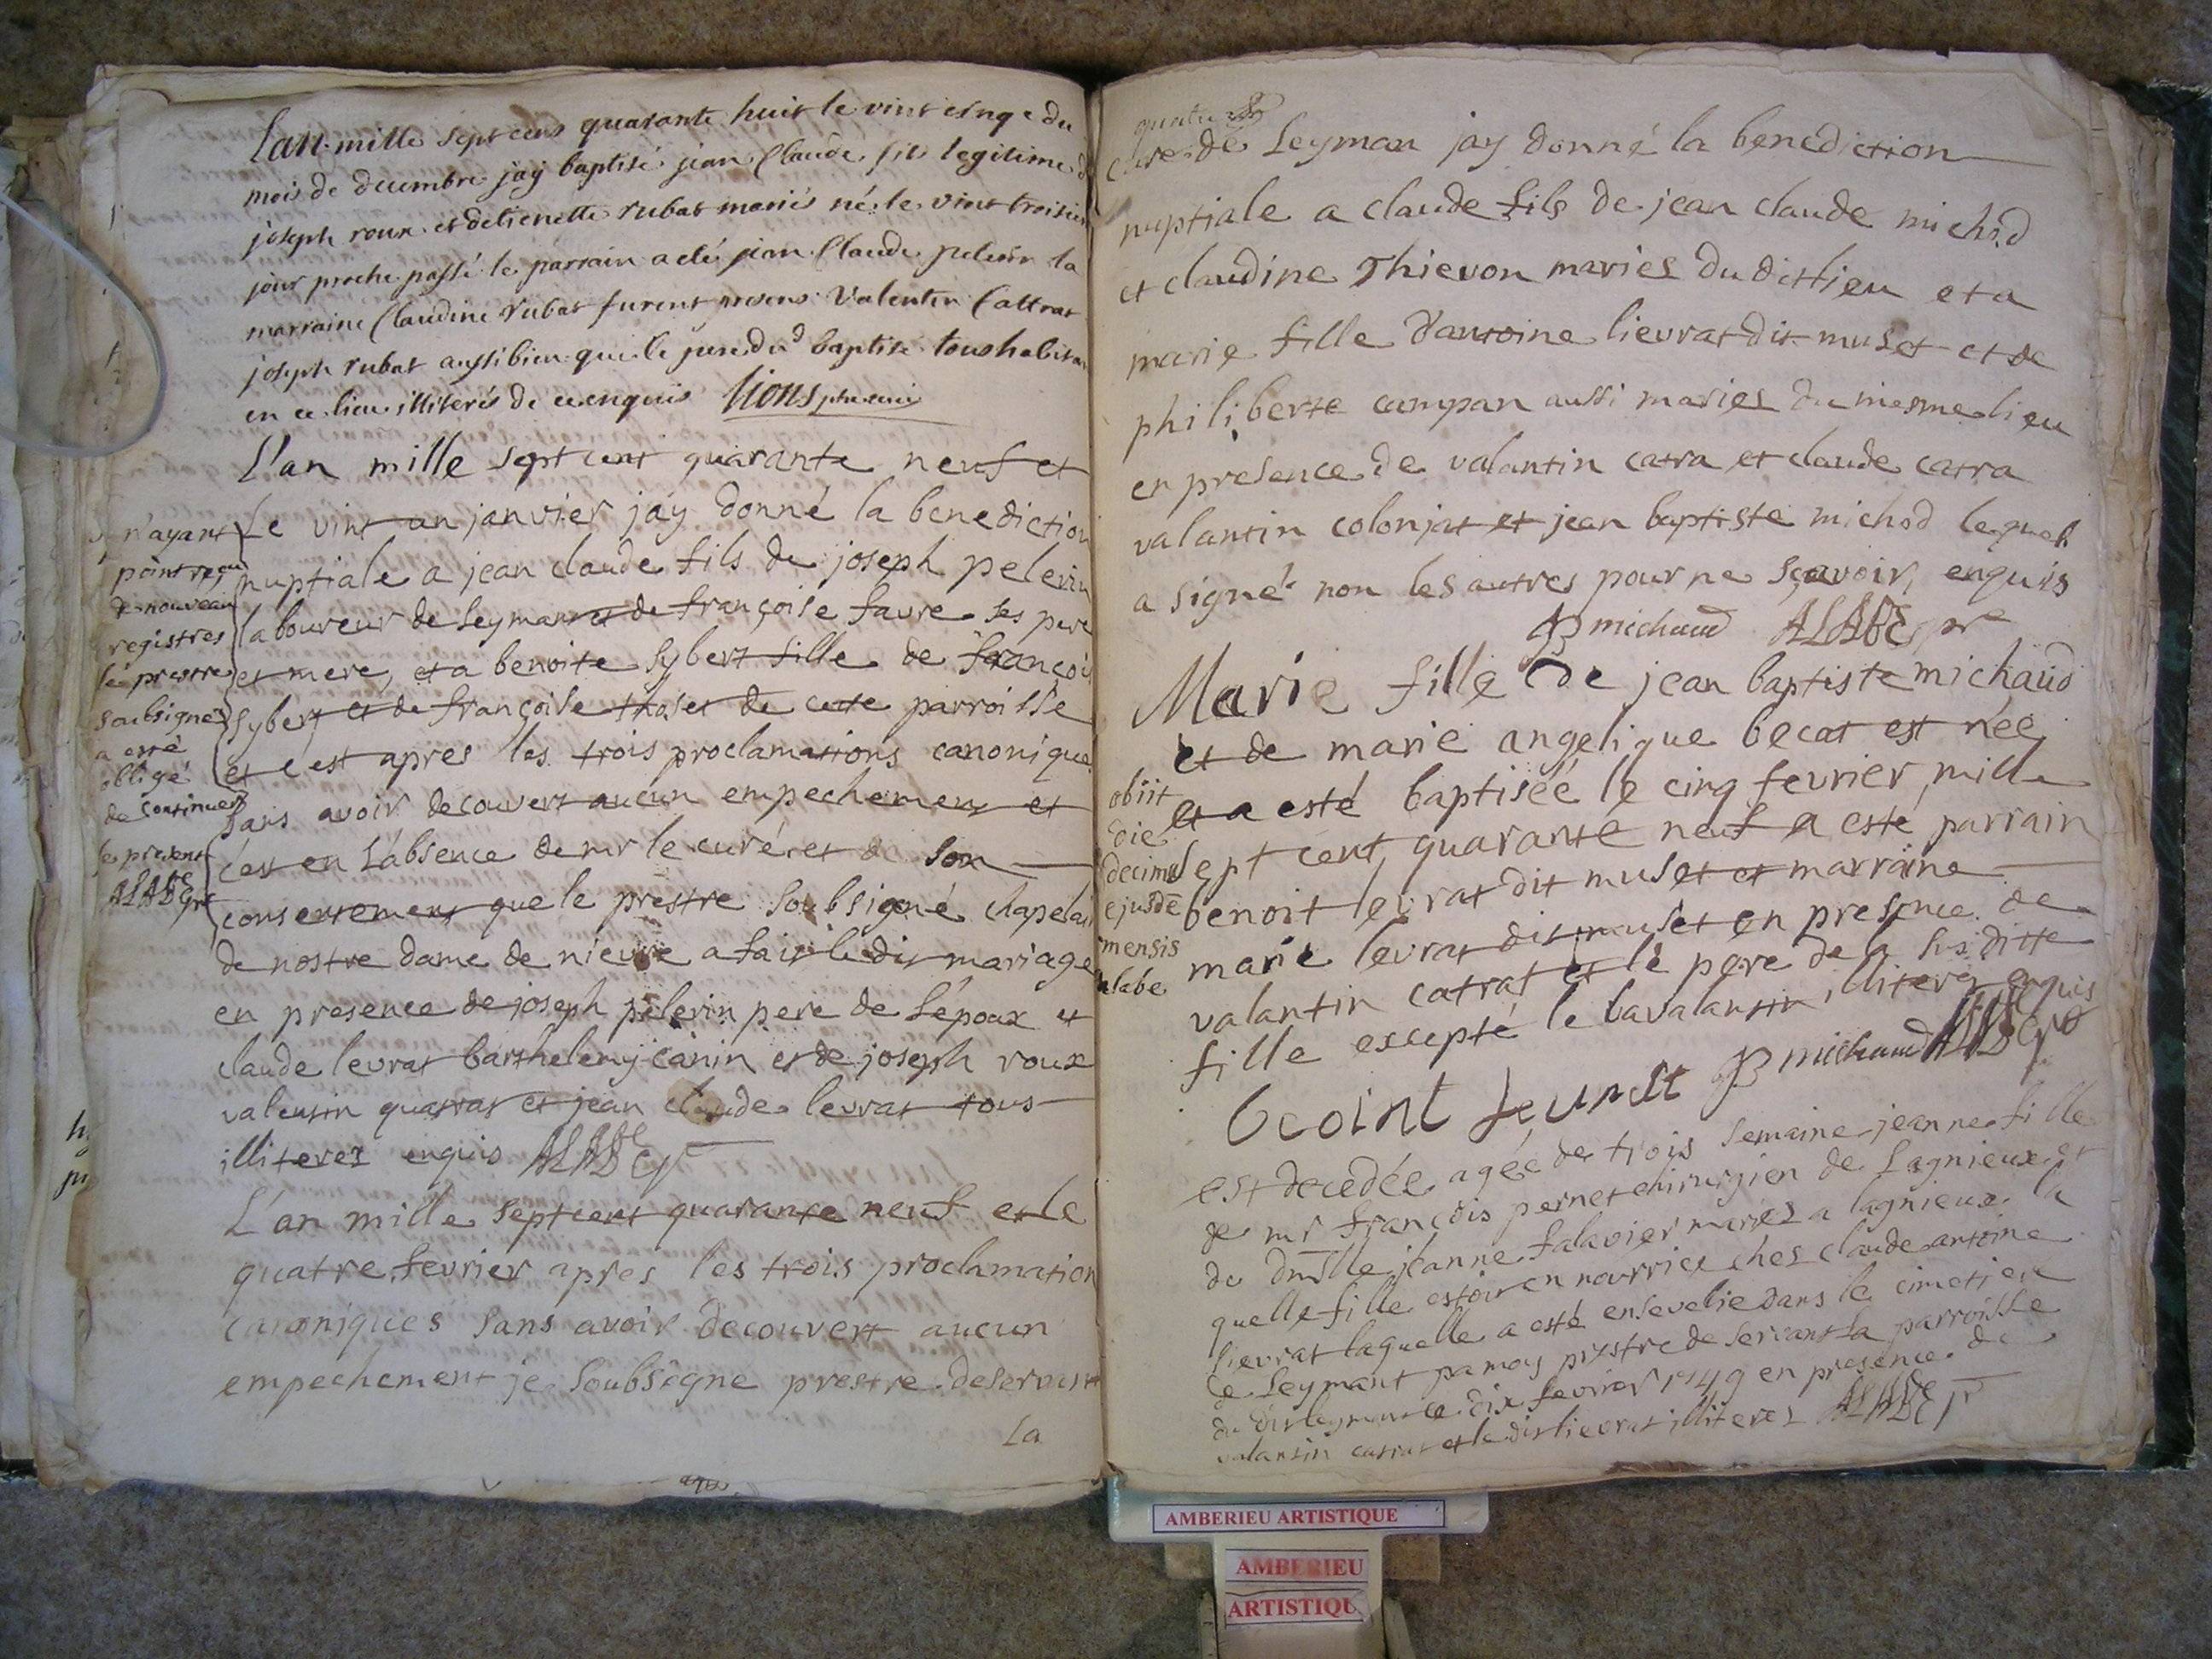 Lan mille sept cens quarante huit le vint cinq e du
mois de decembre jay baptisé jean Claude fils legitime d
joseph roux et detienette rubat mariés né le vint troisiem
jour proche passé le parrain a eté jean Claude pelerin la
marraine Claudine rubat furent presens Valentin Cattrat
joseph rubat aussi bien que le pere du d baptisé tous habitan
en ce lieu illiterés de ce enquis Lions
L'an mille sept cent quarante neuf et
Le vint un janvier jay donné la benediction
nuptiale a jean claude fils de joseph pelerin
laboureur de Leyman et de françoise favre ses pere
et mere, et a benoite Sybert fille de françois
Sybert et de françoise de cette parroisse
et c'est apres les trois proclamations canoniques
sans avoir decouvert aucun empechement et
c'est en l'absence de mr le curé et de son
consentement que le prestre soubsigné chapelai
de nostre dame de nievre a fait le dit mariage
en presence de joseph pelerin pere de l'epoux et
claude levrat barthelemy canin et de joseph roux
valentin quatrat et jean claude levrat tous
illiterez enquis ALABE pr
n'ayant
point reçu
de nouveau
registres
le prestre
soubsigné
a esté
obligé
de continuer
le present
ALABE pr
L'an mille sept cent quarante neuf et le
quatre fevrier apres les trois proclamation
canoniques sans avoir decouvert aucun
empechement je soubsigné prestre deservant
La
cure de Leyman jay donné la benediction
nuptiale a claude fils de jean claude michod
et claudine Thievon maries du dit lieu et a
marie fille d'antoine lievrat dit muset et de
philiberte campan aussi maries du mesme lieu
en presence de valantin catra et claude catra
valantin colonjat et jean baptiste michod lequel
a signé non les autres pour ne sçavoir, enquis
JB michaud ALABE pr
Marie fille de jean baptiste michaud
et de marie angelique becat est née
et a esté baptisée le cinq fevrier mille
sept cent quarante neuf a esté parrain
benoit levrat dit muset et marraine
marie levrat dit muset en presence de
valantin catrat et le pere de la susditte
fille excepté le illiterez enquis
JB michaud ALABE pr
obiit
die
decima
ejusdē
mensis
alabe
est decedée agée de trois semaine jeanne fille
de mr françois pernet chirurgien de Lagnieux et
de dmlle jeanne falavier mariez a lagnieux la
quelle fille estoit en nourrice ches claude antoine
lievrat laquelle a esté ensevelie dans le cimetiere
de Leymant par moy prestre deservant la parroisse
du dit leymant ce dix fevrier 1749 en presence de
valantin catrat et le dit lievrat illiterez ALABE pr
AMBERIEU ARTISTIQUE
AMBERIEU
ARTISTIQU